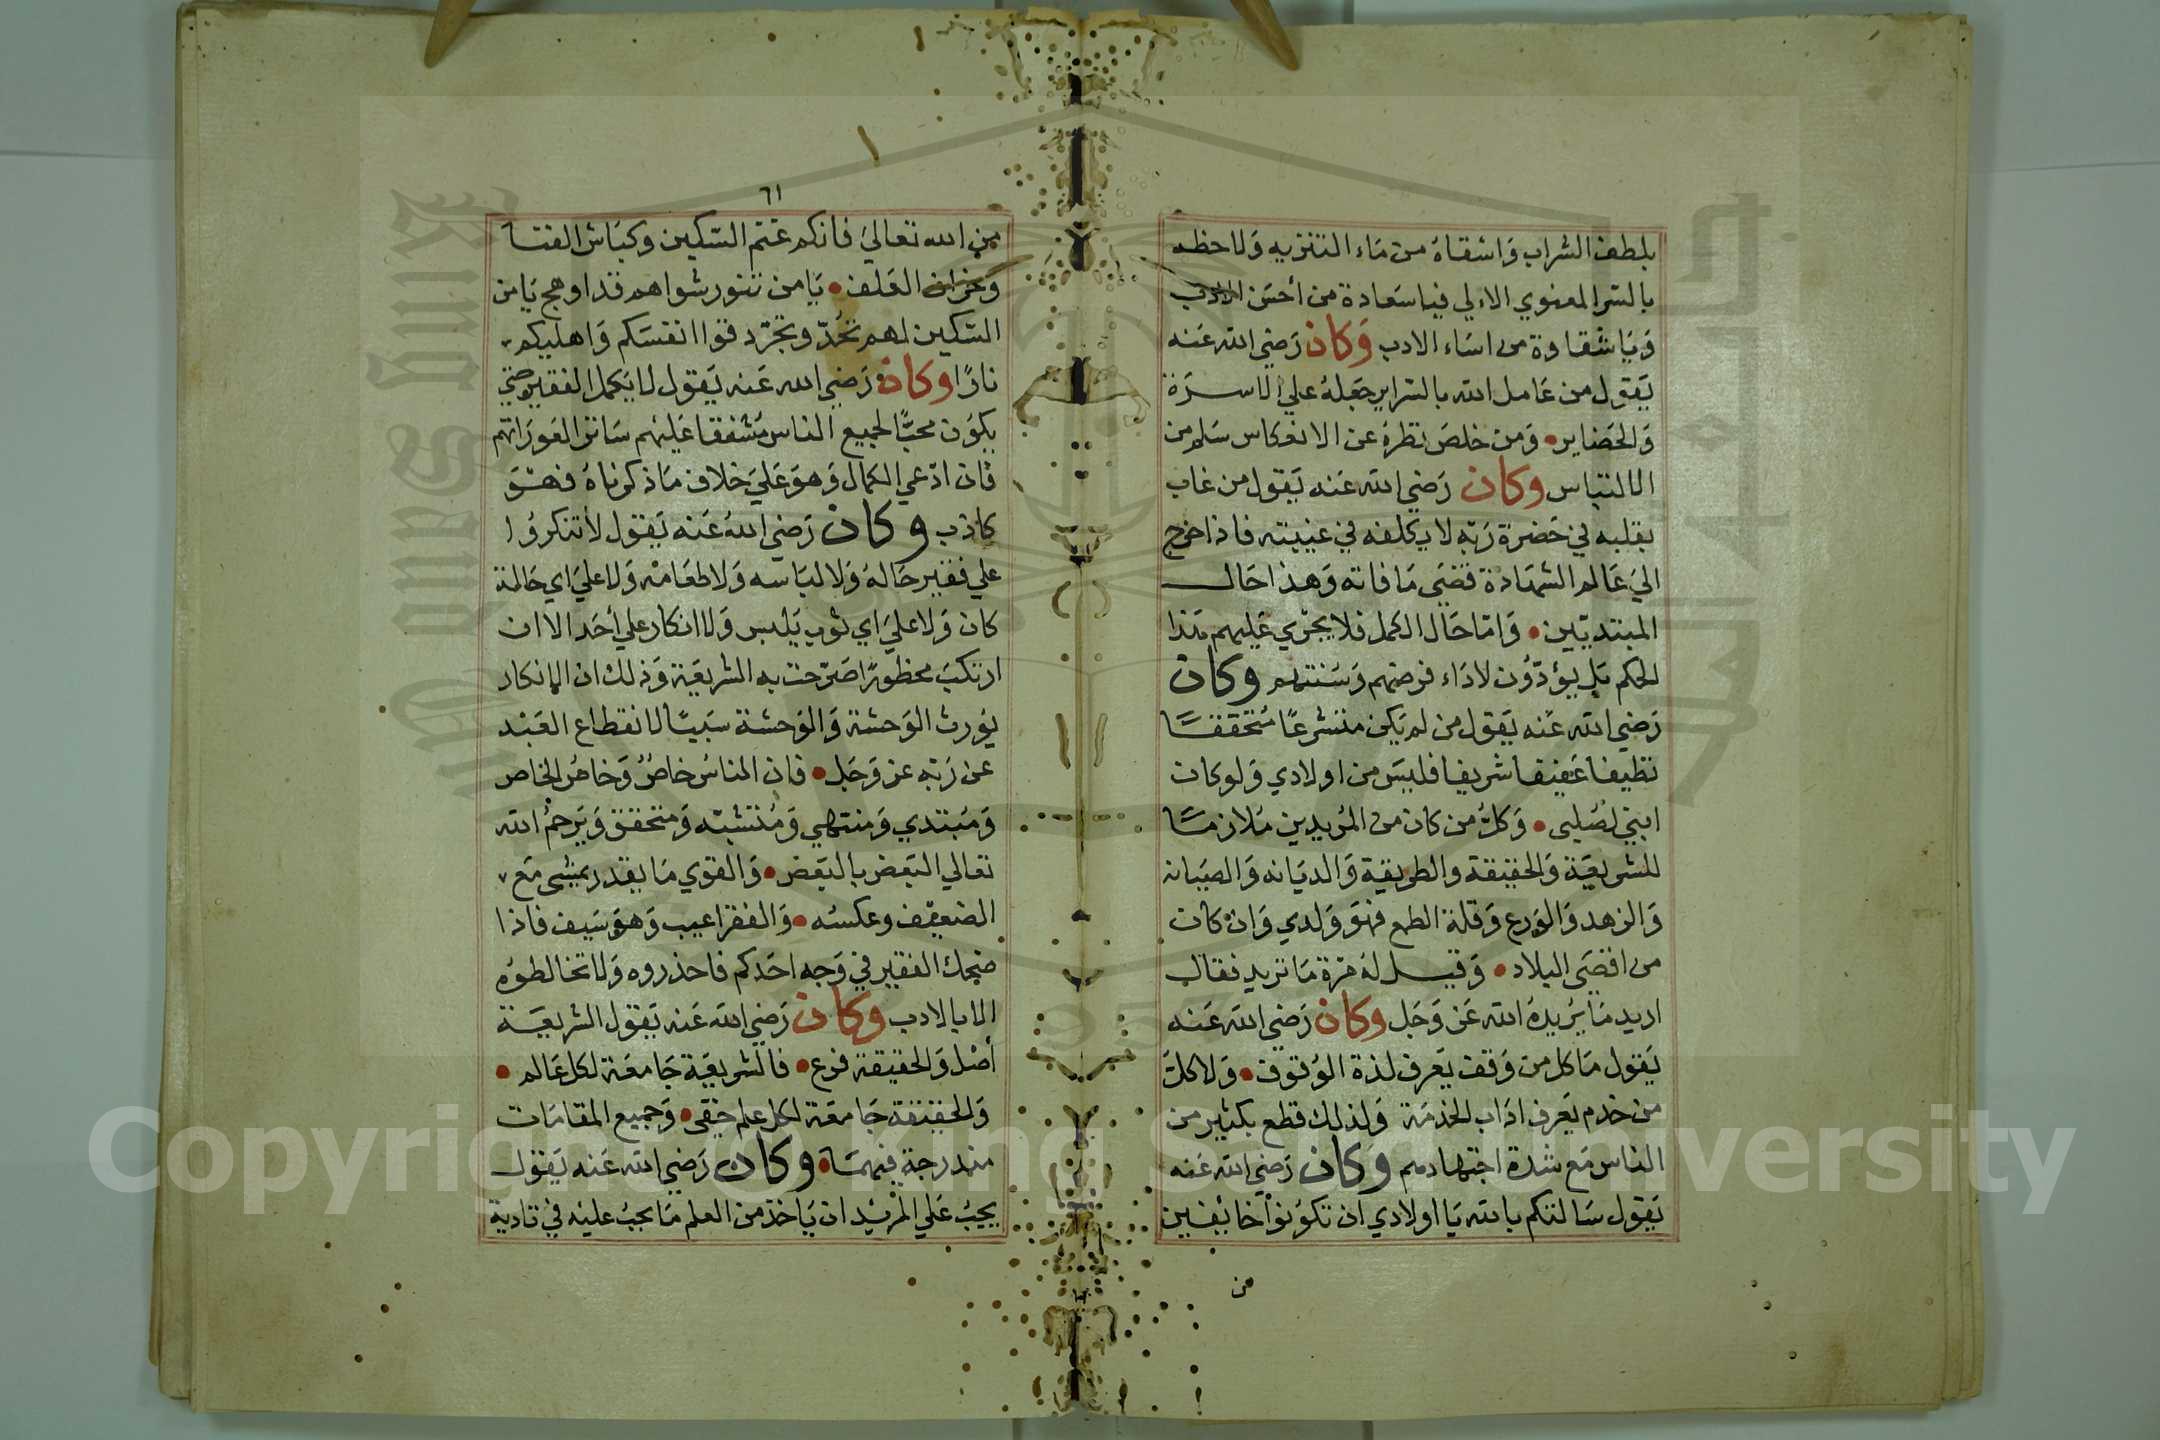 بلطف الشراب وَاسْقاهُ من مَاء التنزيه وَلاحظه
بالسر المعنوي الاولي فيا سَعادة من أحسَن الادب
وَيَا شقاوة من اسَاء الادب وَكان رَضي الله عَنه
يَقول من عَامل الله بالسراير جَعلهُ علي الاسرة
وَالحضاير • وَمن خلصَ نظرهُ عن الانعكاس سَلم من
الالتباس وكان رَضي الله عَنه يَقول من غاب
بقلبه في حَضرة رَبّه لا يكلفه في غيبته فاذا خرج
اليَ عَالم الشهَادة قضَي مَا فاته وَهذا حَال
المبتديّين • وَامّا حَال الكمل فلا يجْري عَليهم هَذا
الحكم بَل يؤدّوُن لادَاء فرضهم وَسُنتهم وكان
رَضي الله عَنه يَقول من لم يَكن متشرعًا متحققًا
نظيفا عَفيفا شريفا فليسَ من اولادي وَلوكان
ابني لصُلبي • وَكلُّ من كان من المُريدين مُلازمًا
للشريعَة وَالحقيقة والطريقة وَالديَانه وَالصيَانه
وَالزهد وَالوَرع وَقلة الطمع فهوَ وَلدي وَان كان
من اقصَى البلاد • وَقيل لهُ مَرة مَا تريد فقال
اريد مَا يُريدهُ الله عَز وَجَل وكان رَضي الله عَنه
يَقول مَا كل من وَقف يَعرف لذة الوُقوف • وَلا كلّ
من خدم يَعرف ادَاب الخدمَة وَلذلك قطع بكثير من
الناس مَع شدة اجتهادهم وَكان رَضي الله عَنه
يَقول سَالتكم بالله يَا اولادي ان تكوُنوْا خائفين
من
٦١
من الله تعالي فانكم غنم السّكين وكبَاش الفنا
وَخرفان العَلف • يَا من تنور شواهم قد اوهج يَا من
السّكين لهم تحُدّ وتجرّد قوا انفسَكم وَاهليكم
نارًا وكان رَضي الله عَنه يَقول لا يَكمل الفقير حتي
يكوُن محبًّا لجميع الناس مُشفقا عَليْهم سَاتر العَورَاتهم
فان ادّعي الكمال وَهوَ عَليَ خلاف مَا ذكرناهُ فهوَ
كاذب وكان رَضي اللهُ عَنه يَقول لا تنكرُوا
علي فقير حَالهُ وَلا لبَاسه وَلا طعَامهْ وَلا عليَ اي حَالة
كان وَلا عليَ اي ثوب يَلبس وَلا انكار علي أحَد الا ان
ارتكبَ محظورًا صَرّحت به الشريعَة وَذلك ان الإنكار
يوُرث الوَحشة وَالوَحشة سَببًا لانقطاع العَبْد
عن رَبّه عز وَجَل • فان الناسُ خاصُ وَخاصُ الخاص
وَمُبتدي وَمنتهي وَمُتشبّه وَمتحقق وَيَرحمُ الله
تعالي البَعض بالبَعض • وَالقوي مَا يقدر يمشي مَع
الضعيف وعكسُه • وَالفقرا غيب وَهوَ سَيف فاذا
ضحك الفقير في وَجه احَدكم فاحذروه وَلا تخالطوُه
الا بالادب وكان رَضي الله عَنه يَقول الشريعَة
أصْل وَالحقيقة فرع • فالشريعَة جَامعَة لكل عَالم •
وَالحقيقة جَامعَة لكل علم خفي • وَجميع المقامَات
مندرجة فيهمَا • وكان رَضي الله عَنه يَقول
يجبُ عَلي المُريْد ان يَاخذ من العلم مَا يجبُ عليْه في تادية